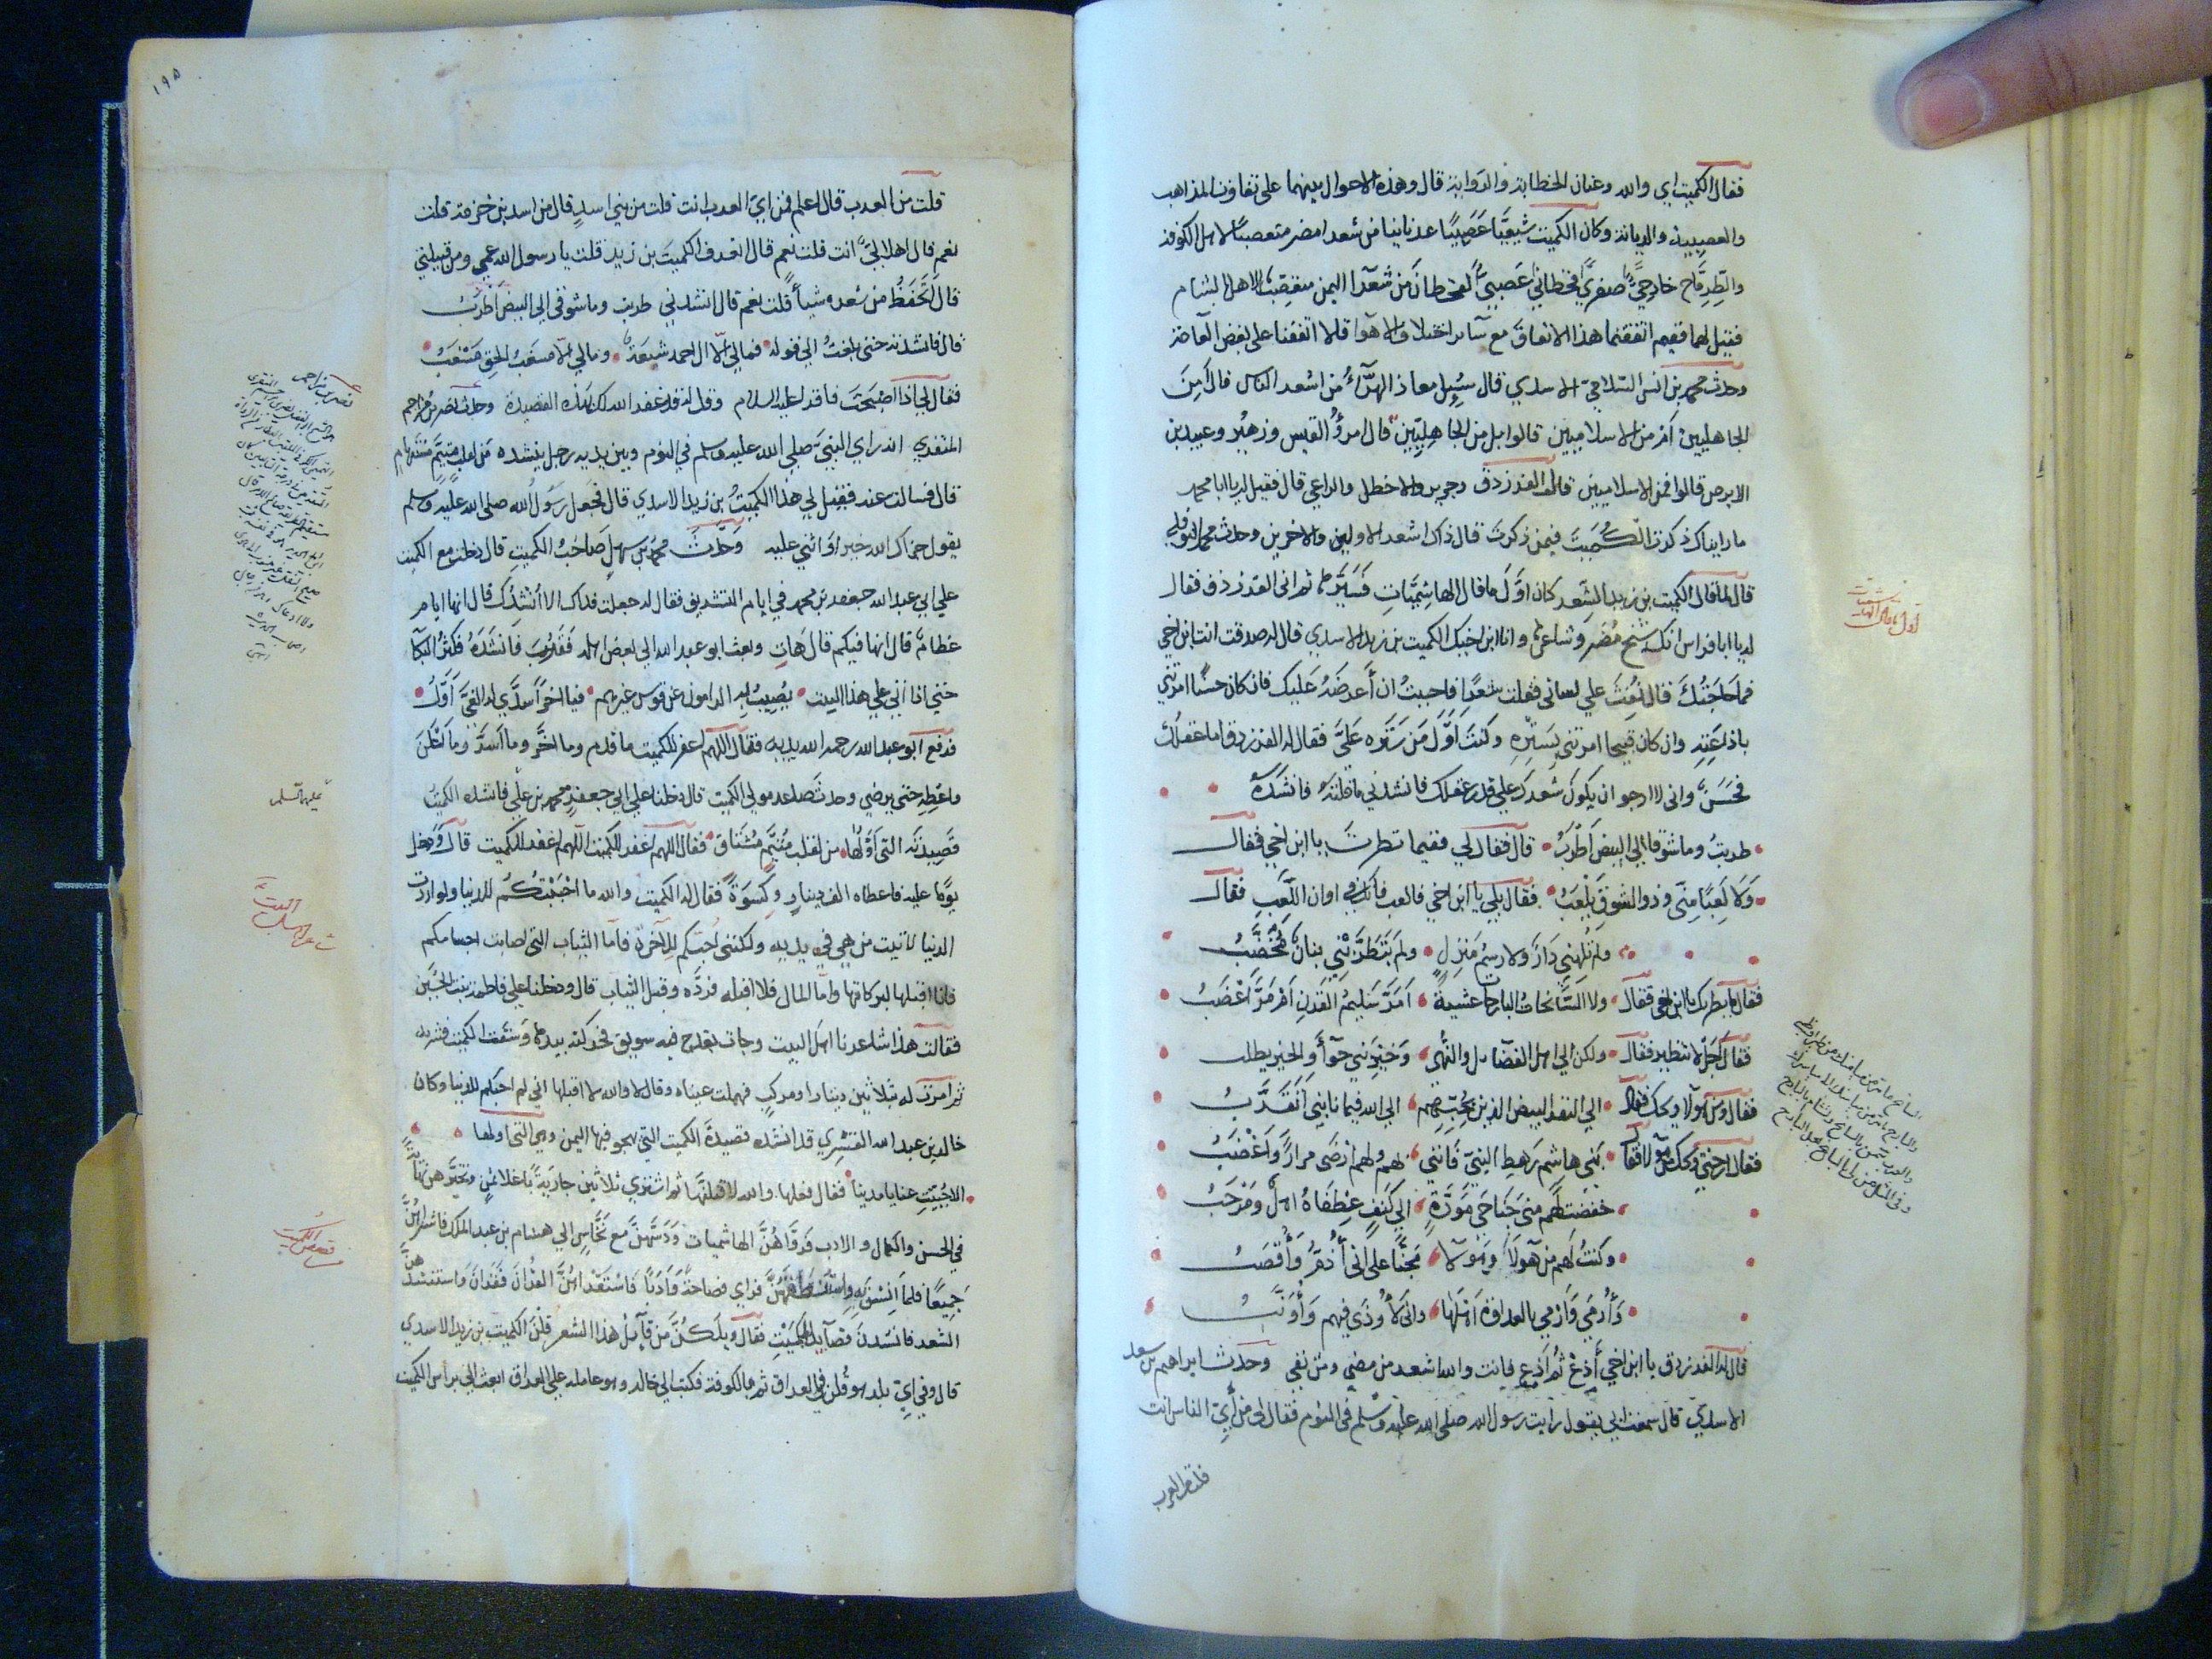 فقال الكميت اي والله وعنان الخطابة والرواية قال وهذه الاحوال بينهما على تفاوت المذاهب
والعصبية والديانة وكان الكميت شيعيًّا عصبيًّا عدنانيا من شعرا مضر متعصبًا لاهل الكوفة
والطرماح خارجيّ صفريّ قحطانيّ عصبيّ لقحطان من شعرا اليمن متعصب لاهل الشام
فقيل لهما ففيم اتفقتما هذا الاتفاق مع سائر اختلاف الاهوا قالا اتفقنا على بغض العامة
وحدث محمد بن انس السلامي الاسدي قال سئل معاذ الهرّاء من اشعر الناس قال امن
الجاهليين ام من الاسلاميين قالوا بل من الجاهليين قال امرؤ القيس وزهير وعبيد بن
الابرص قالوا فمن الاسلاميين قال الفرزدق وجرير والاخطل والراعي قال فقيل له يا ابا محمد
ما رايناك ذكرت الكميت فيمن ذكرت قال ذاك اشعر الاولين والاخرين وحدث محمد النوفلي
قال لما قال الكميت بن زيد الشعر كان اوّل ما قال الهاشميات فسترها ثم اتى الفرزدق فقال
له يا ابا فراس انك شيخ مضر وشاعرها وانا ابن اخيك الكميت بن زيد الاسدي قال له صدقت انت ابن اخي
فما حاجتك قال نفث على لسانى فقلت شعرًا فاحببت ان أعرضه عليك فان كان حسنًا امرتني
باذاعته وان كان قبيحا امرتني بستره وكنت اوّل من ستره عليّ فقال له الفرزدق اما عقلك
فحسن وانى لارجو ان يكون شعرك على قدر عقلك فانشدني ما قلته فانشده
طربت وما شوقا الى البيض أطرب قال فقال لي ففيما تطرب يا ابن اخي فقال
ولا لعبًا منّى وذو الشوق يلعب فقال بلى يا ابن اخي فالعب فانك في اوان اللعب فقال
ولم يلهني دار ولا رسم منزل ولم يتطرّبني بنان مخضّب
فقال ما يطربك يا ابن اخى فقال ولا السانحات البارحات عشية امرّ سليم القرن ام مرّ اغضب
فقال اجل لا تتطير فقال ولكن الى اهل الفضائل والنهى وخير بني حوّاء والخير يطلب
فقال ومن هولاء ويحك فقال الى النفر البيض الذين بحبهم الى الله فيما نابني أتقرّب
فقال ارحني ويحك من هولا فقال بني هاشم رهط النبيّ فانني بهم ولهم ارضى مرارًا واغضب
خفضت لهم منّى جناحي مودّة الى كنف عطفاه اهل ومرحب
وكنت لهم من هولا وهولا مجنًّا على انى أذمّ وأقصب
وأرمى وأرمي بالعداوة اهلها وانى لأوذى فيهم وأونّب
قال له الفرزدق يا ابن اخي أذع ثم اذع فانت والله اشعر من مضى ومن بقى وحدث ابراهيم بن سعد
الاسدي قال سمعت ابي يقول رايت رسول الله صلى الله عليه وسلم في النوم فقال لى من أيّ الناس انت
قلت من العرب
اول ما قال الكميت
قلت من العرب قال اعلم فمن ايّ العرب انت قلت من بني اسد قال من اسد بن خزيمة قلت
نعم قال اهلالي انت قلت نعم قال اتعرف الكميت بن زيد قلت يا رسول الله عمي ومن قبيلتي
قال أتحفظ من شعره شيأ قلت نعم قال انشدني طربت وما شوقا الى البيض أطرب
قال فانشدته حتى بلغت الى قوله فمالي الّا ال احمد شيعة ومالي الّا مشعب الحق مشعب
فقال لي اذا اصبحت فاقرا عليه السلام وقل له قد غفر الله لك بهذه القصيدة وحدث نصر بن مزاحم
المنقري انه راى النبيّ صلى الله عليه وسلم في النوم وبين يديه رجل ينشده من لقلب متيّم مستهام
قال فسالت عنه فقيل لي هذا الكميت بن زيد الاسدي قال فجعل رسول الله صلى الله عليه وسلم
يقول جزاك الله خيرا واثنى عليه وحدّث محمد بن سهل صاحب الكميت قال دخلت مع الكميت
على ابي عبدالله جعفر بن محمد في ايام التشريق فقال له جعلت فداك الا أنشدك قال انها ايام
عظام قال انها فيكم قال هات وبعث ابو عبد الله الى بعض اهله فقرب فانشده فكثر البكا
حتى اذا اتى على هذا البيت يصيب به الرامون عن قوس غيرهم فيا اخرًا سدّى له الغيّ اوّل
فرفع ابو عبدالله رحمه الله يديه فقال اللهم اغفر للكميت ما قدم وما اخّر وما اسرّ وما اعلن
واعطه حتى يرضى وحدث صاعد مولى الكميت قال دخلنا على ابي جعفر محمد بن علي فانشده الكميت
قصيدته التي أوّلها من لقلب متيّم مشتاق فقال اللهم اغفر للكميت اللهم اغفر للكميت قال ودخل
يومًا عليه فاعطاه الف دينار وكسوة فقال له الكميت والله ما احببتكم للدنيا ولو اردت
الدنيا لاتيت من هي في يديه ولكنني احبكم للآخرة فاما الثياب التي اصابت اجسامكم
فانا اقبلها لبركاتها وامّا المال فلا اقبله فردّه وقبل الثياب قال ودخلنا على فاطمة بنت الحسين
فقالت هذا شاعرنا اهل البيت وجات بقدح فيه سويق فحركته بيدها وسقت الكميت فشربه
ثم امرت له بثلاثين دينارا ومركب فهملت عيناه وقال لا والله لا اقبلها اني لم احبكم للدنيا وكان
خالد بن عبدالله القشري قد انشد قصيدة الكميت التي يهجو فيها اليمن وهي التي اولها
الا حييت عنا يا مدينا فقال فعلها والله لاقتلنه ثم اشترى ثلاثين جارية باغلا ثمن وتخيّرهن نهاية
في الحسن والكمال والادب فروّاهنّ الهاشميات ودسّهنّ مع نخّاس الى هشام بن عبد الملك فاشتراهنّ
جميعًا فلما انسن به واستنطقهنّ فراى فصاحة وأدبًا فاستقراهنّ القران فقران واستنشدهن
الشعر فانشدن قصايد الكميت فقال ويلكنّ من قايل هذا الشعر قلن الكميت بن زيد الاسدي
قال وفي ايّ بلد هو قلن في العراق ثم بالكوفة فكتب الى خالد وهو عامله على العراق ابعث الى براس الكميت
١٩٥